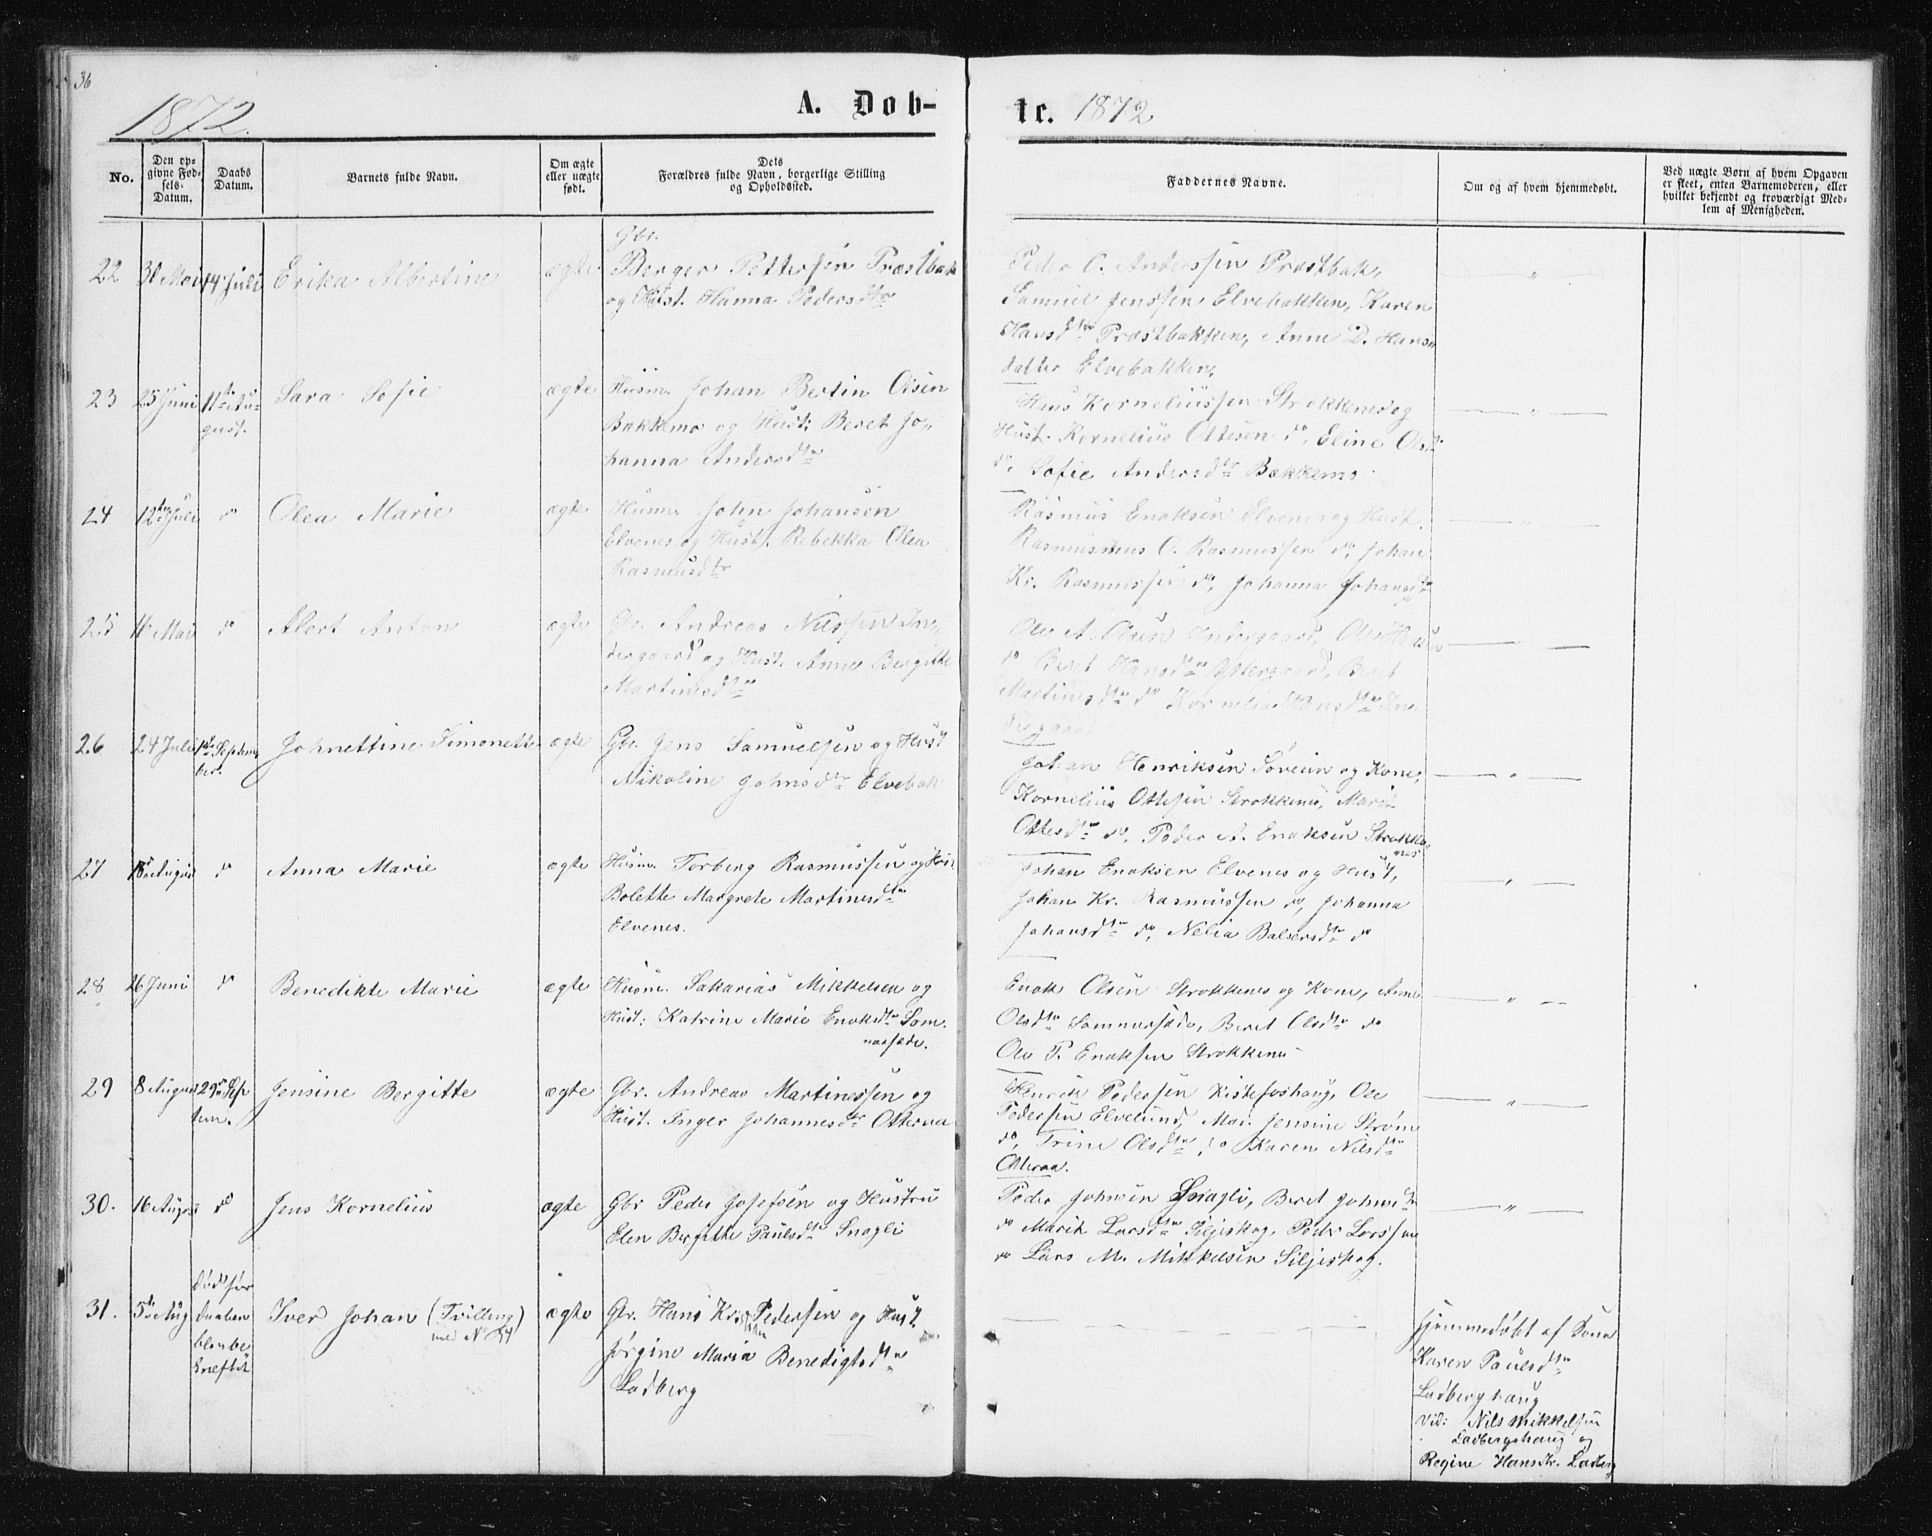 36
1872.
A. Døb-
te. 1872
No.
Den op-
givne Fød-
sels-
Datum.
Daabs
Datum.
Barnets fulde Navn.
Om ægte
eller uægte
født.
Dets
Forældres fulde Navn, borgerlige Stilling
og Opholdssted.
Faddernes Navne.
Om og af hvem hjemmedøbt.
Ved uægte Børn af hvem Opgaven
er skeet, enten Barnemoderen, eller
hvilket bekjendt og troværdigt Med-
lem af Menigheden.
22 31 Mai 14 Juli Erika Albertine ægte
Gbr.
Berger Pettersen Præstbak
og Hust. Hanna Pedersdtr
Peder O. Anderssen Præstbak,
Samuel Jenssen Elvebakken, Karen
Hansdtr Præstbakken, Anne D. Hans
datter Elvebakken
23 25 Juni 11te Au-
gust.
Sara Sofie ægte
Husm. Johan Bertin Olsen
Bakkemo og Hust: Beret Jo-
hanna Andersdtr
Hans Korneliussen Strokkenes og
Hust. Kornelius Ottesen do, Eline Olsdtr
do, Sofie Andersdtr Bakkemo
24 12te Juli do Olea Marie ægte
Husm. John Johansen
Elvenes og Hust. Rebekka Olea
Rasmusdtr
Rasmus Enoksen Elvenes og Hust.
Rasmusmus O. Rasmussen do, Johan
Kr. Rasmussen do, Johanna Johansdtr
do
25 16 Mai do Albert Anton ægte
Gbr. Andreas Nilssen In-
dergaard og Hust. Anne Bergitte
Martinesdtr
Ole A. Olsen Indergaard, Ole Hansen
do Beret Hansdtr Østergaard, Beret
Martinesdtr do Kornelia Hansdtr In-
dergaard
26 24 Juli 1ste Septem-
ber.
Johnettine Simonette ægte
Gbr. Jens Samuelsen og Hust
Nikoline Johnsdtr Elvebak
Johan Henriksen Søreim og Kone,
Kornelius Ottesen Strokkenes, Marit
Ottesdtr do, Peder A. Enoksen Strokke
nes
27 18 August do Anna Marie ægte
Husm. Torberg Rasmussen og Hust
Bolette Margrete Martinesdtr
Elvenes.
Johan Enoksen Elvenes og Hust,
Johan Kr. Rasmussen do, Johanna
Johansdtr do, Nelia Balsersdtr do
28 26 Juni do Benedikte Marie ægte
Husm. Sakarias Mikkelsen og
Hust: Katrine Marie Enoksdtr Som-
mersæde.
Enok Olsen Strokkenes og Kone, Anne
Olsdtr Sommersæde, Beret Olsdtr do
Ole P. Enoksen Strokkenes
29 8 August 29de Sep
tem.
Jensine Bergitte ægte
Gbr. Andreas Martinessen og
Hust. Inger Johannesdtr Otteraa
Henrik Pedersen Kistefoshaug, Ole
Pedersen Elvelund, Mad. Jensine Strøm
do, Trine Olsdtr do Karen Nilsdtr
Otteraa.
30. 16 August do Jens Kornelius ægte
Gbr Peder Josefsen og Hustru
Elen Bergitte Paulsdtr Snagli
Peder Johnsen Snagli, Beret Johnsdtr
do Marit Larsdtr Siljeskog, Peder Larssen
do Lars M. Mikkelsen Siljeskog.
31. 5te Aug
Død før
Daaben
blev be
kræftet
Iver Johan (Tvilling)
med No 34
ægte
Gbr. Hans Kr. Pedersen og Hust.
Jørgine Maria Benedigtsdtr
Ladberg
Hjemmedøbt af Kone
Karen Paulsdtr
Ladberghaug
Vid: Nils Mikkelsen
Ladbergshaug og
Regine Hansdtr. Ladberg